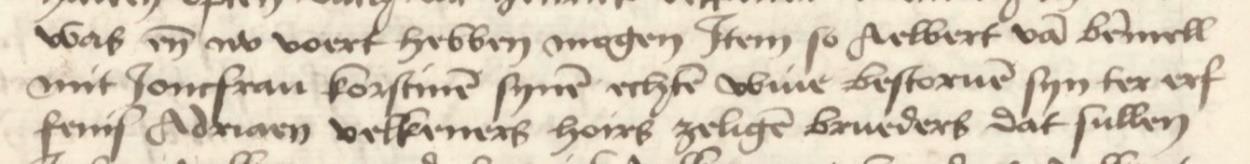 was en̄ nv voert hebben mogen Item so Aelbert vā bēmell
mit Joncfrau korstinē synē echtē wiue bestoruē syn ter erf
fenis Adriaen velkeners hoirs zeligē brueders dat sullen